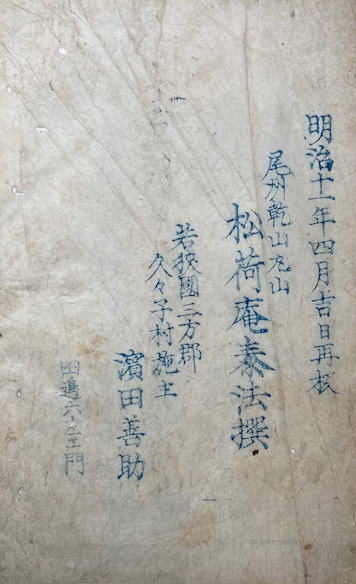 明治十一年四月吉日再校
尾州乾山丸山
松荷庵泰法撰
若狹國三方郡
久々子村施主
濱田善助
田邉六左エ門